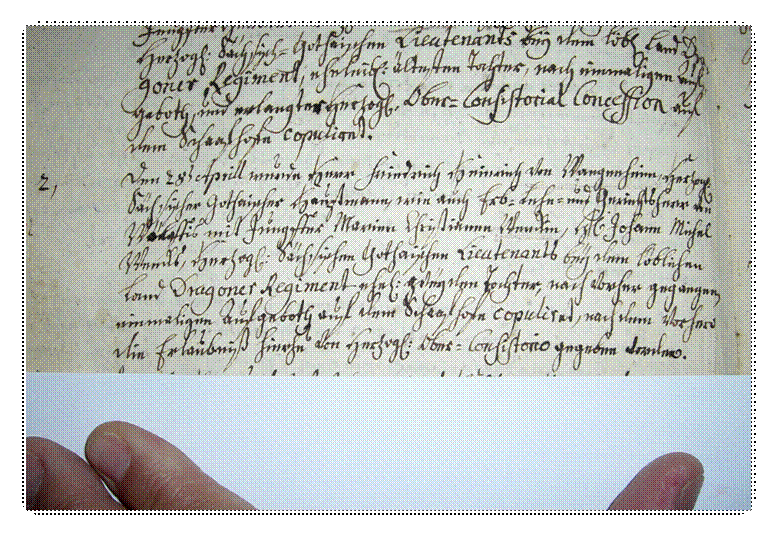 Herzogl: Sächsisch-Gothaischen Lieutenants bey dem löbl Land Dra
goner Regiment, ehelich: ältesten Tochter, nach einmaligen auf
geboth, und erlangter Herzogl. Ober-Consistorial Concession auf
dem Schaafhofe copuliret.
2, Den 28 Aprill wurde Herr Friedrich Heinrich von Wangenheim, Herzogl.
Sächsischer Gothaischer Hauptmann, wie auch Erb- Lehn- und Gerichtsherr
mit Jungfer Marien Christianen Wendin, H. Johann Michel
Wends, Herzogl: Sächsischen Gothaischen Lieutenants bey dem löblichen
Land Dragoner Regiment ehel: Tochter, nach vorher gegangen
einmaligen Aufgeboth auf dem Schaafhofe copuliret, nachdem vorhero
die Erlaubniß hierzu von Herzogl: Ober-Consistorio gegeben worden.